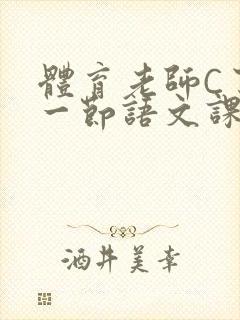 體育老師C
一節語文課
酒井美幸